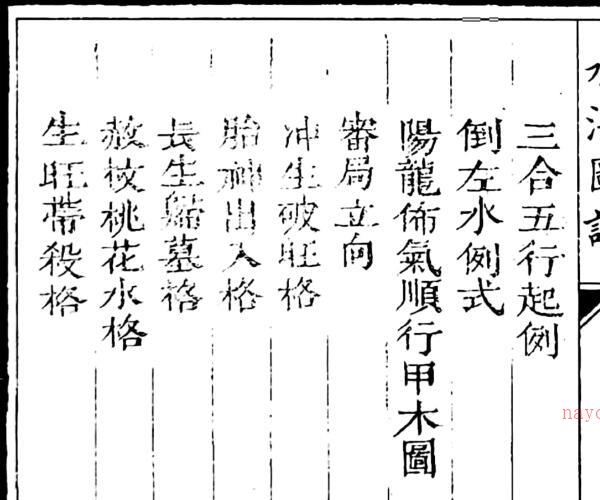 三合五行起例
倒左水例式
陽龍佈氣順行甲木圖
審局立向
冲生破旺格
胎神出入格
長生墓格
赦杖桃花水格
生旺帶殺格